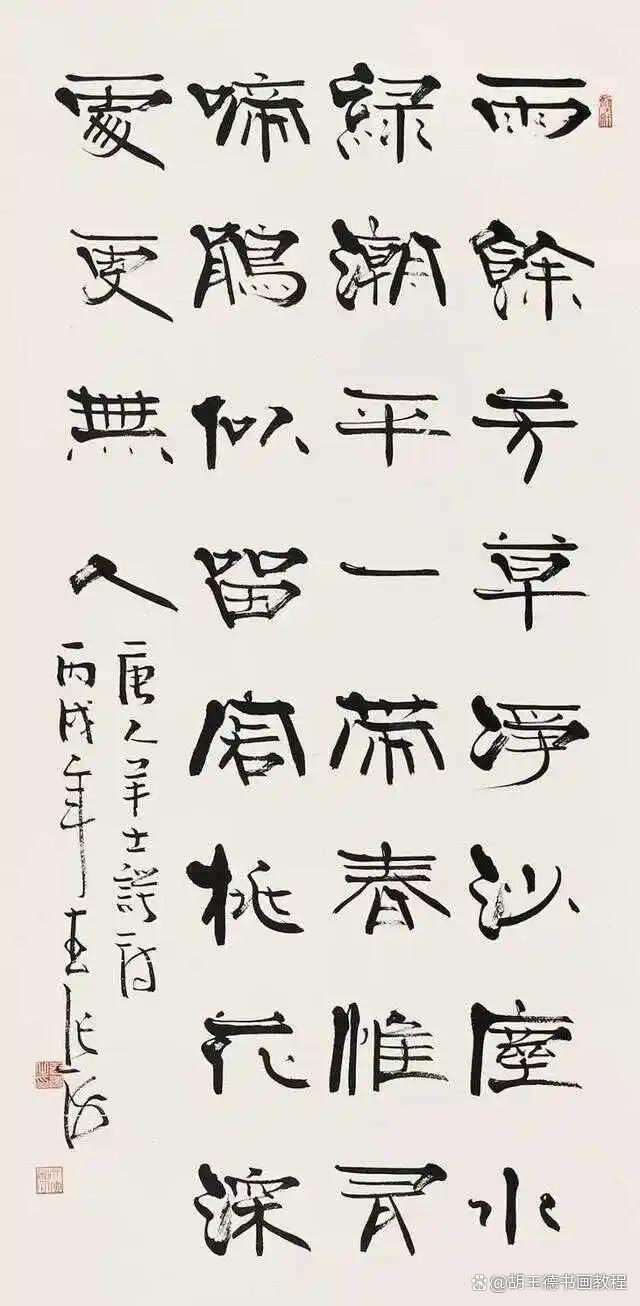 雨餘芳草淨沙塵水
綠潮平一帶春惟有
啼鵑似留客桃花深
處更無人
唐人羊士諤詩
丙戌年張海
胡玉德书画教程